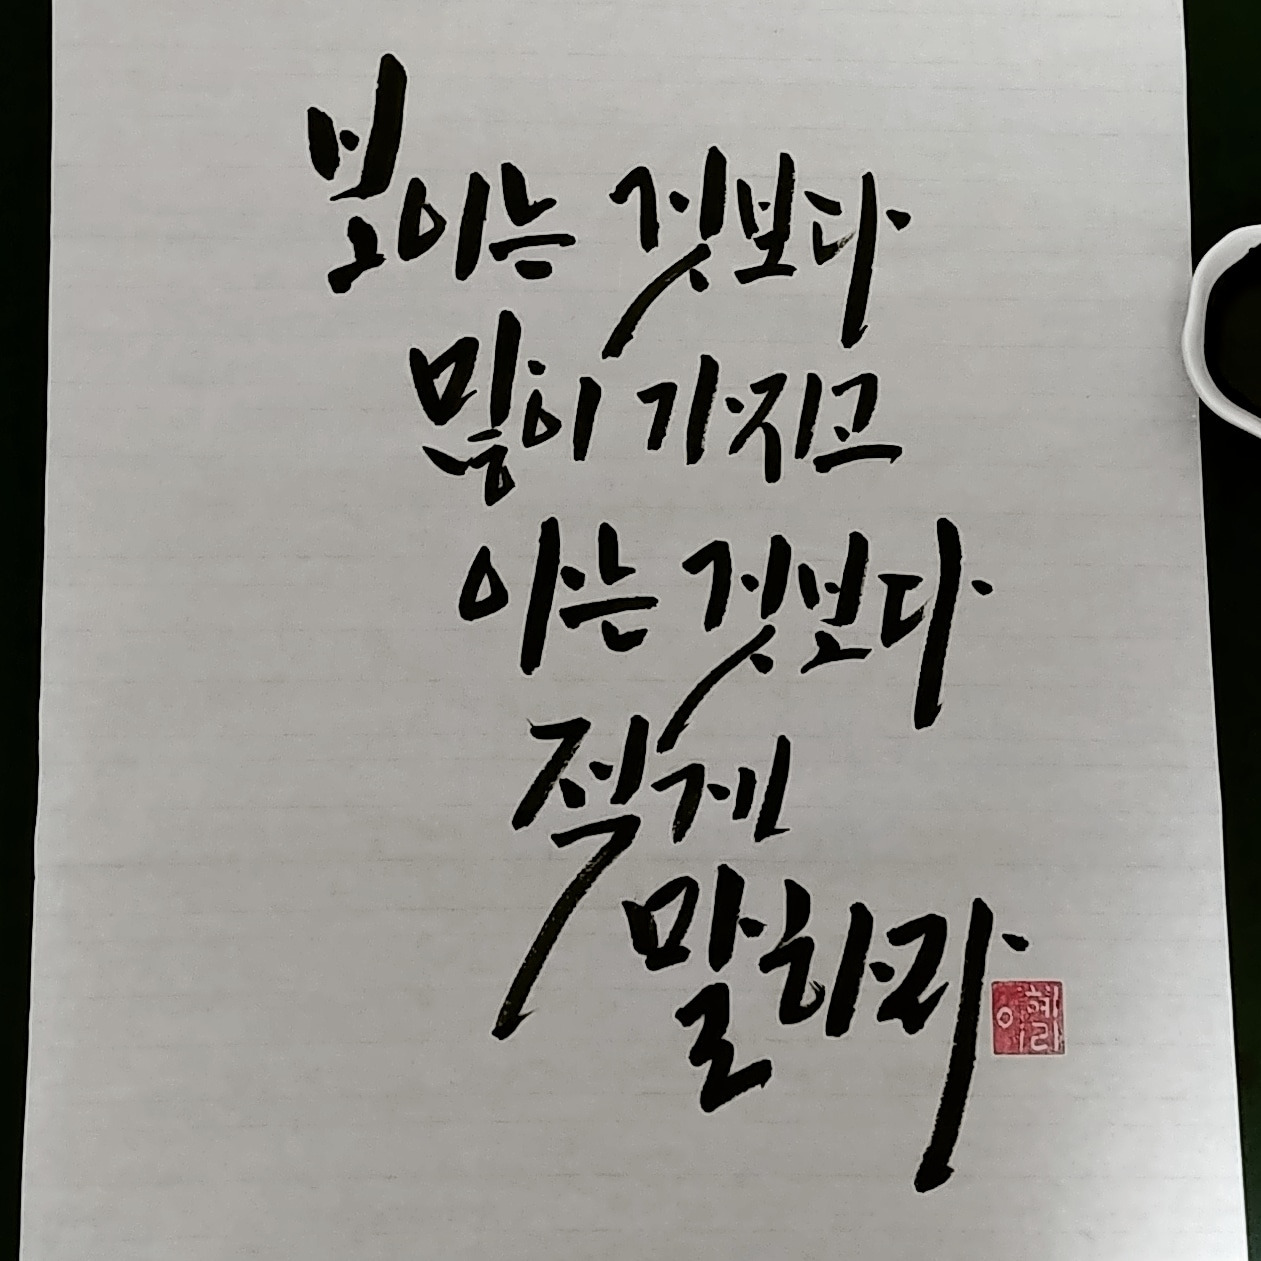 보이는 것보다
많이 가지고
아는 것보다
적게
말하라
이혜리